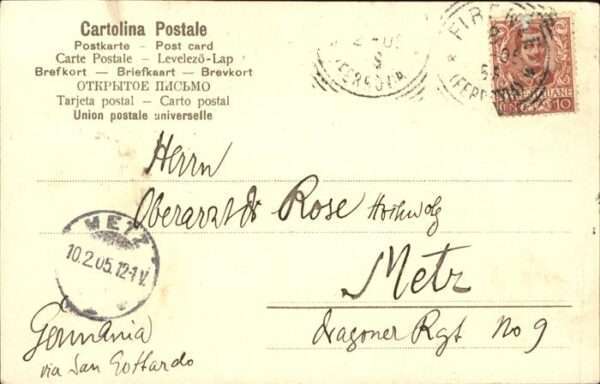 Cartolina Postale
Postkarte - Post card
Carte Postale - Levelező-Lap
Brefkort - Briefkaart - Brevkort
ОТКРЫТОЕ ПІСЬМО
Tarjeta postal - Carto postal
Union postale universelle
FIRENZE
(FERROVIA)
10
Herrn
Oberarzt Dr Rose
Metz
Dragoner Rgt No 9
METZ
10.2.05.12-1V.
Germania
via San Gottardo